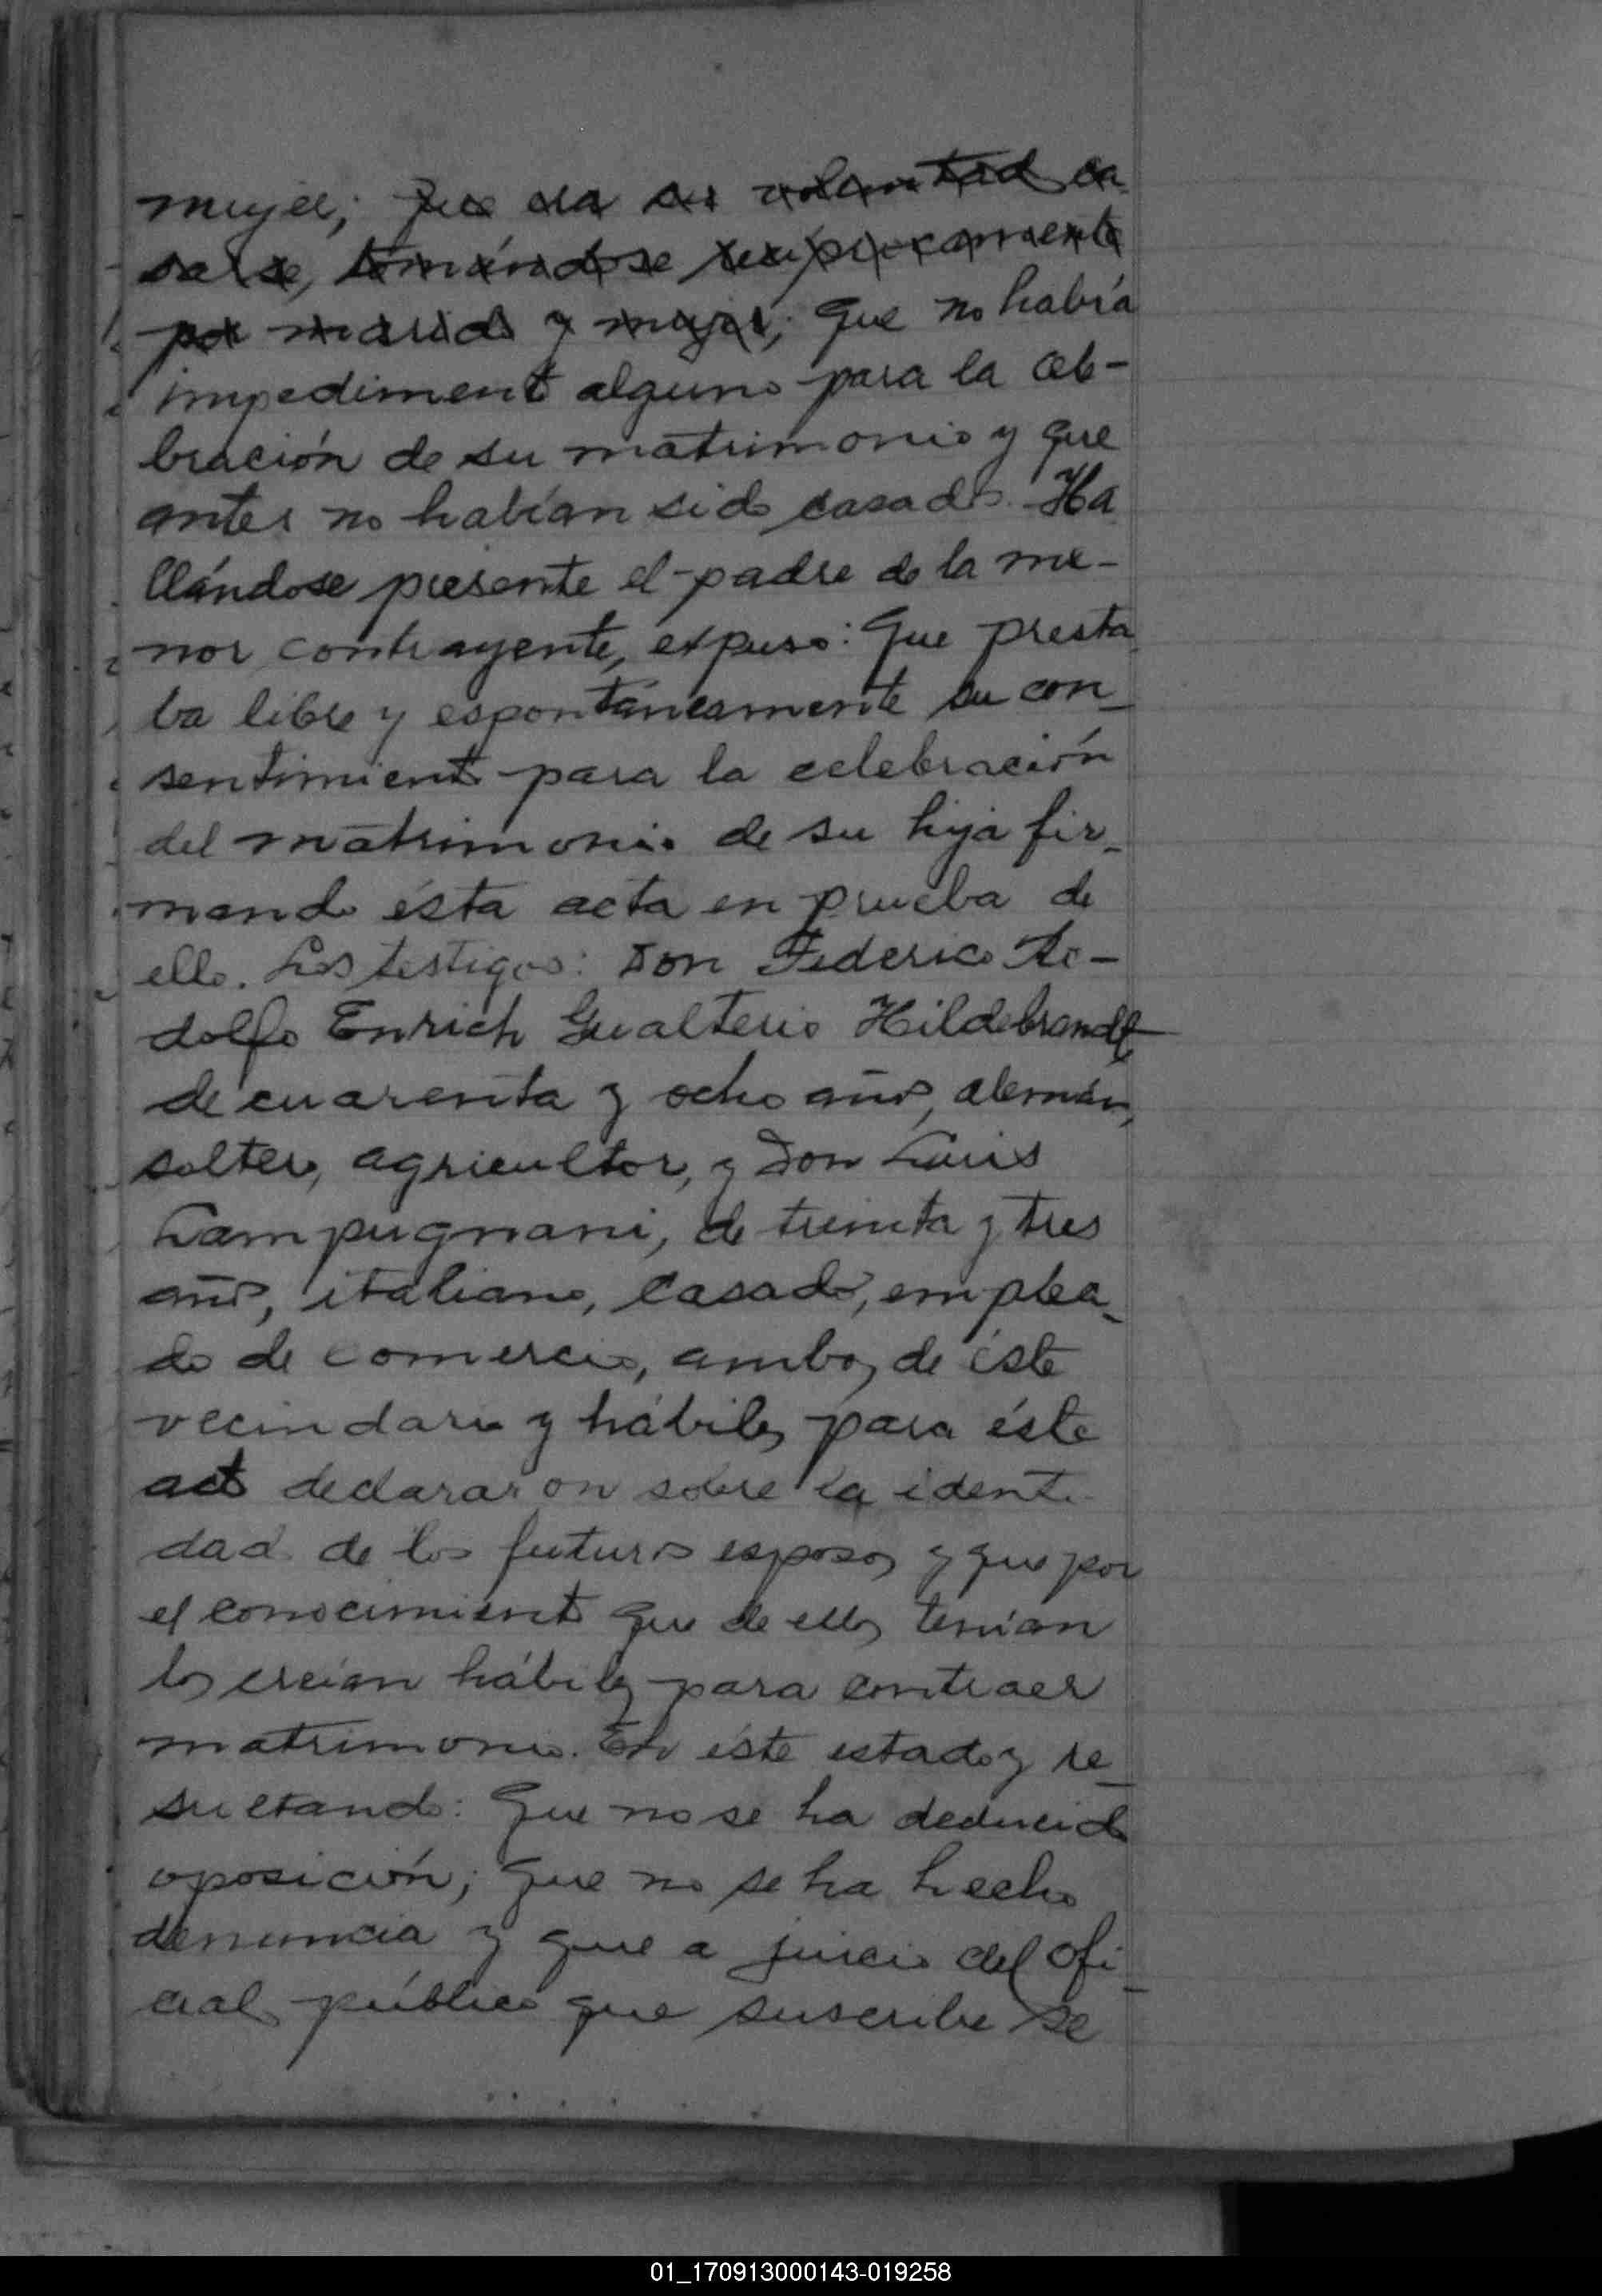 mujer; que era su voluntad ca
sarse, tomándose recíprocamente
por marido y mujer; que no había
impedimento alguno para la cele-
bración de su matrimonio y que
antes no habían sido casados. Ha
llándose presente el padre de la me-
nor contrayente, expuso: Que presta
ba libre y espontáneamente su con_
sentimiento para la celebración
del matrimonio de su hija fir_
mando ésta acta en prueba de
ello. Los testigos: Don Federico
dolfo Enrich Gualterio Hildebrandt
de cuarenta y ocho años, alemán,
soltero, agricultor, y Don Luis
Lampugnani, de treinta y tres
años, italiano, casado, emplea_
do de comercio, ambos de éste
vecindario y hábiles para éste
acto declararon sobre la identi
dad de los futuros esposos y que por
el conocimiento que de ellos tenían
los creían hábiles para contraer
matrimonio. En éste estado y re_
sultando: Que no se ha deducido
oposición; que no se ha hecho
denuncia y que a juicio del ofi_
cial público que suscribe se
01_170913000143-019258